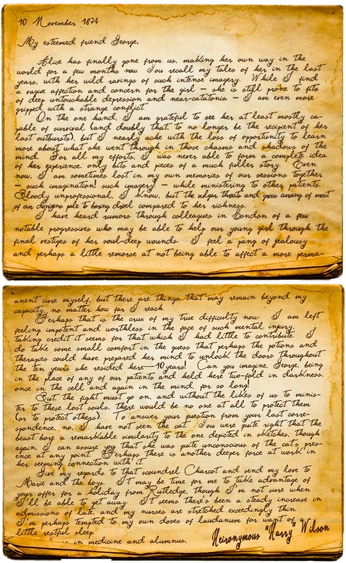 10 November 1874
My esteemed friend George,
Alice has finally gone from us, making her own way in the
world for a few months now. You recall my tales of her in the last
years, with her wild ravings of such intense imagery. While I find
a vague affection and concern for the girl — she is still prone to fits
of deep untouchable depression and near-catatonia — I am even more
gripped with a strange conflict.
On the one hand, I am grateful to see her at least mostly ca-
pable of survival (and doubly that to no longer be the recipient of her
last outbursts), but I nearly ache with the loss of opportunity to learn
more about what she went through in those chasms and shadows of the
mind. For all my efforts, I was never able to form a complete idea
of her experience, only bits and pieces of a much fuller story. Even
now, I am sometimes lost in my own memories of our sessions together
— such imagination! such imagery! — while ministering to other patients.
Bloody unprofessional, I know, but the edgar threats and pious among of most
of our denizens pale to boring drivel compared to her richness.
I have heard rumors through colleagues in London of a few
notable progressives who may be able to help our young girl through the
final vestiges of her soul-deep wounds. I feel a pang of jealousy
and perhaps a little remorse at not being able to affect a more perma-
anent cure myself, but there are things that may remain beyond my
capacity, no matter how far I reach.
Perhaps that is the crux of my true difficulty now. I am left
feeling impotent and worthless in the face of such mental injury,
taking credit it seems for that which I had little to contribute. I
do take some small comfort in the guess that perhaps the potions and
therapies could have prepared her mind to unlock the doors throughout
the ten years she resided here — 10 years! Can you imagine, George, being
in the place of any of our patients and held here two-fold in darkness,
once in the cell and again in the mind, for so long!
But the fight must go on, and without the likes of us to minis-
ter to these lost souls, there would be no one at all to protect them
(or to protect others). To answer your question from your last corre-
spondence, no, I have not seen the cat. You were quite right that the
beast bore a remarkable similarity to the one depicted in sketches, though
again, I can assure you that she was quite unconscious of the cat's pres-
ence at any point. Perhaps there is another deeper force at work in
her seeming connection with it.
Give my regards to that scoundrel Charcot and send my love to
Marie and the boys. It may be time for me to take advantage of
your offer for a holiday from Rutledge, though I'm not sure when
I'll be able to get away. It seems there's been a steady increase in
admissions of late, and my nurses are stretched exceedingly thin.
I'm perhaps tempted to my own doses of laudanum for want of
a little restful sleep.
in medicine and alumnus,
Heironymous "Harry" Wilson